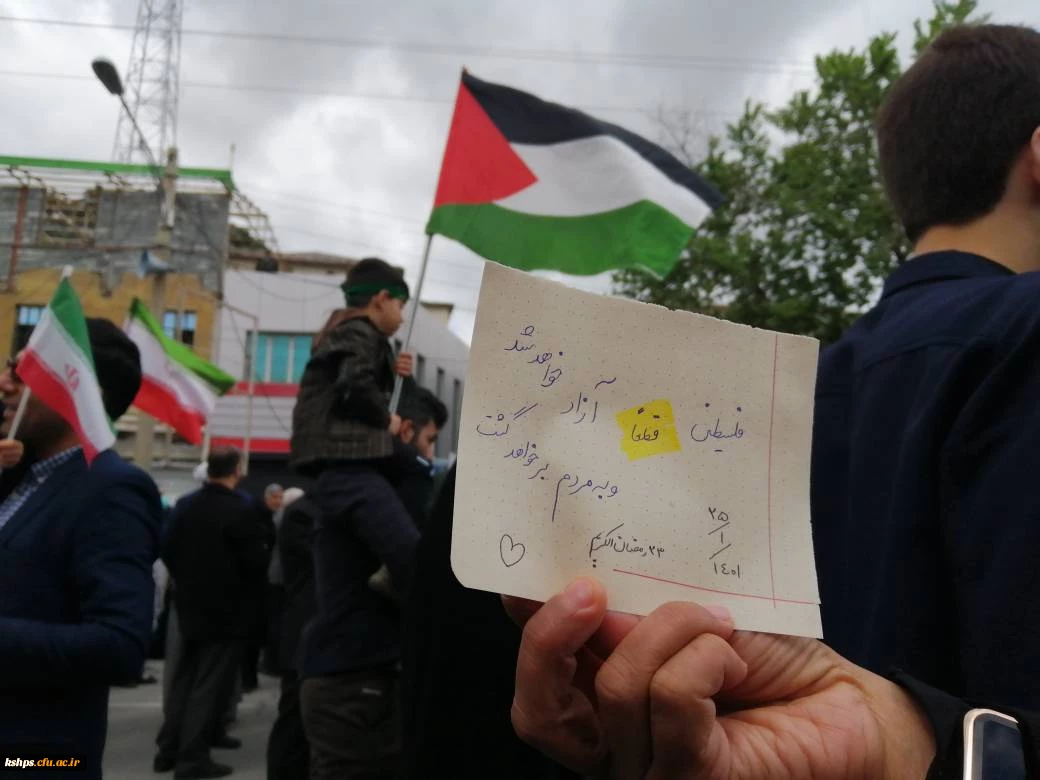 فلسطین قطعاً آزاد خواهد شد
و به مردم بر خواهد گشت
۲۵/۱/۱۴۰۱
۲۳ رمضان الکریم
kshps.cfu.ac.ir